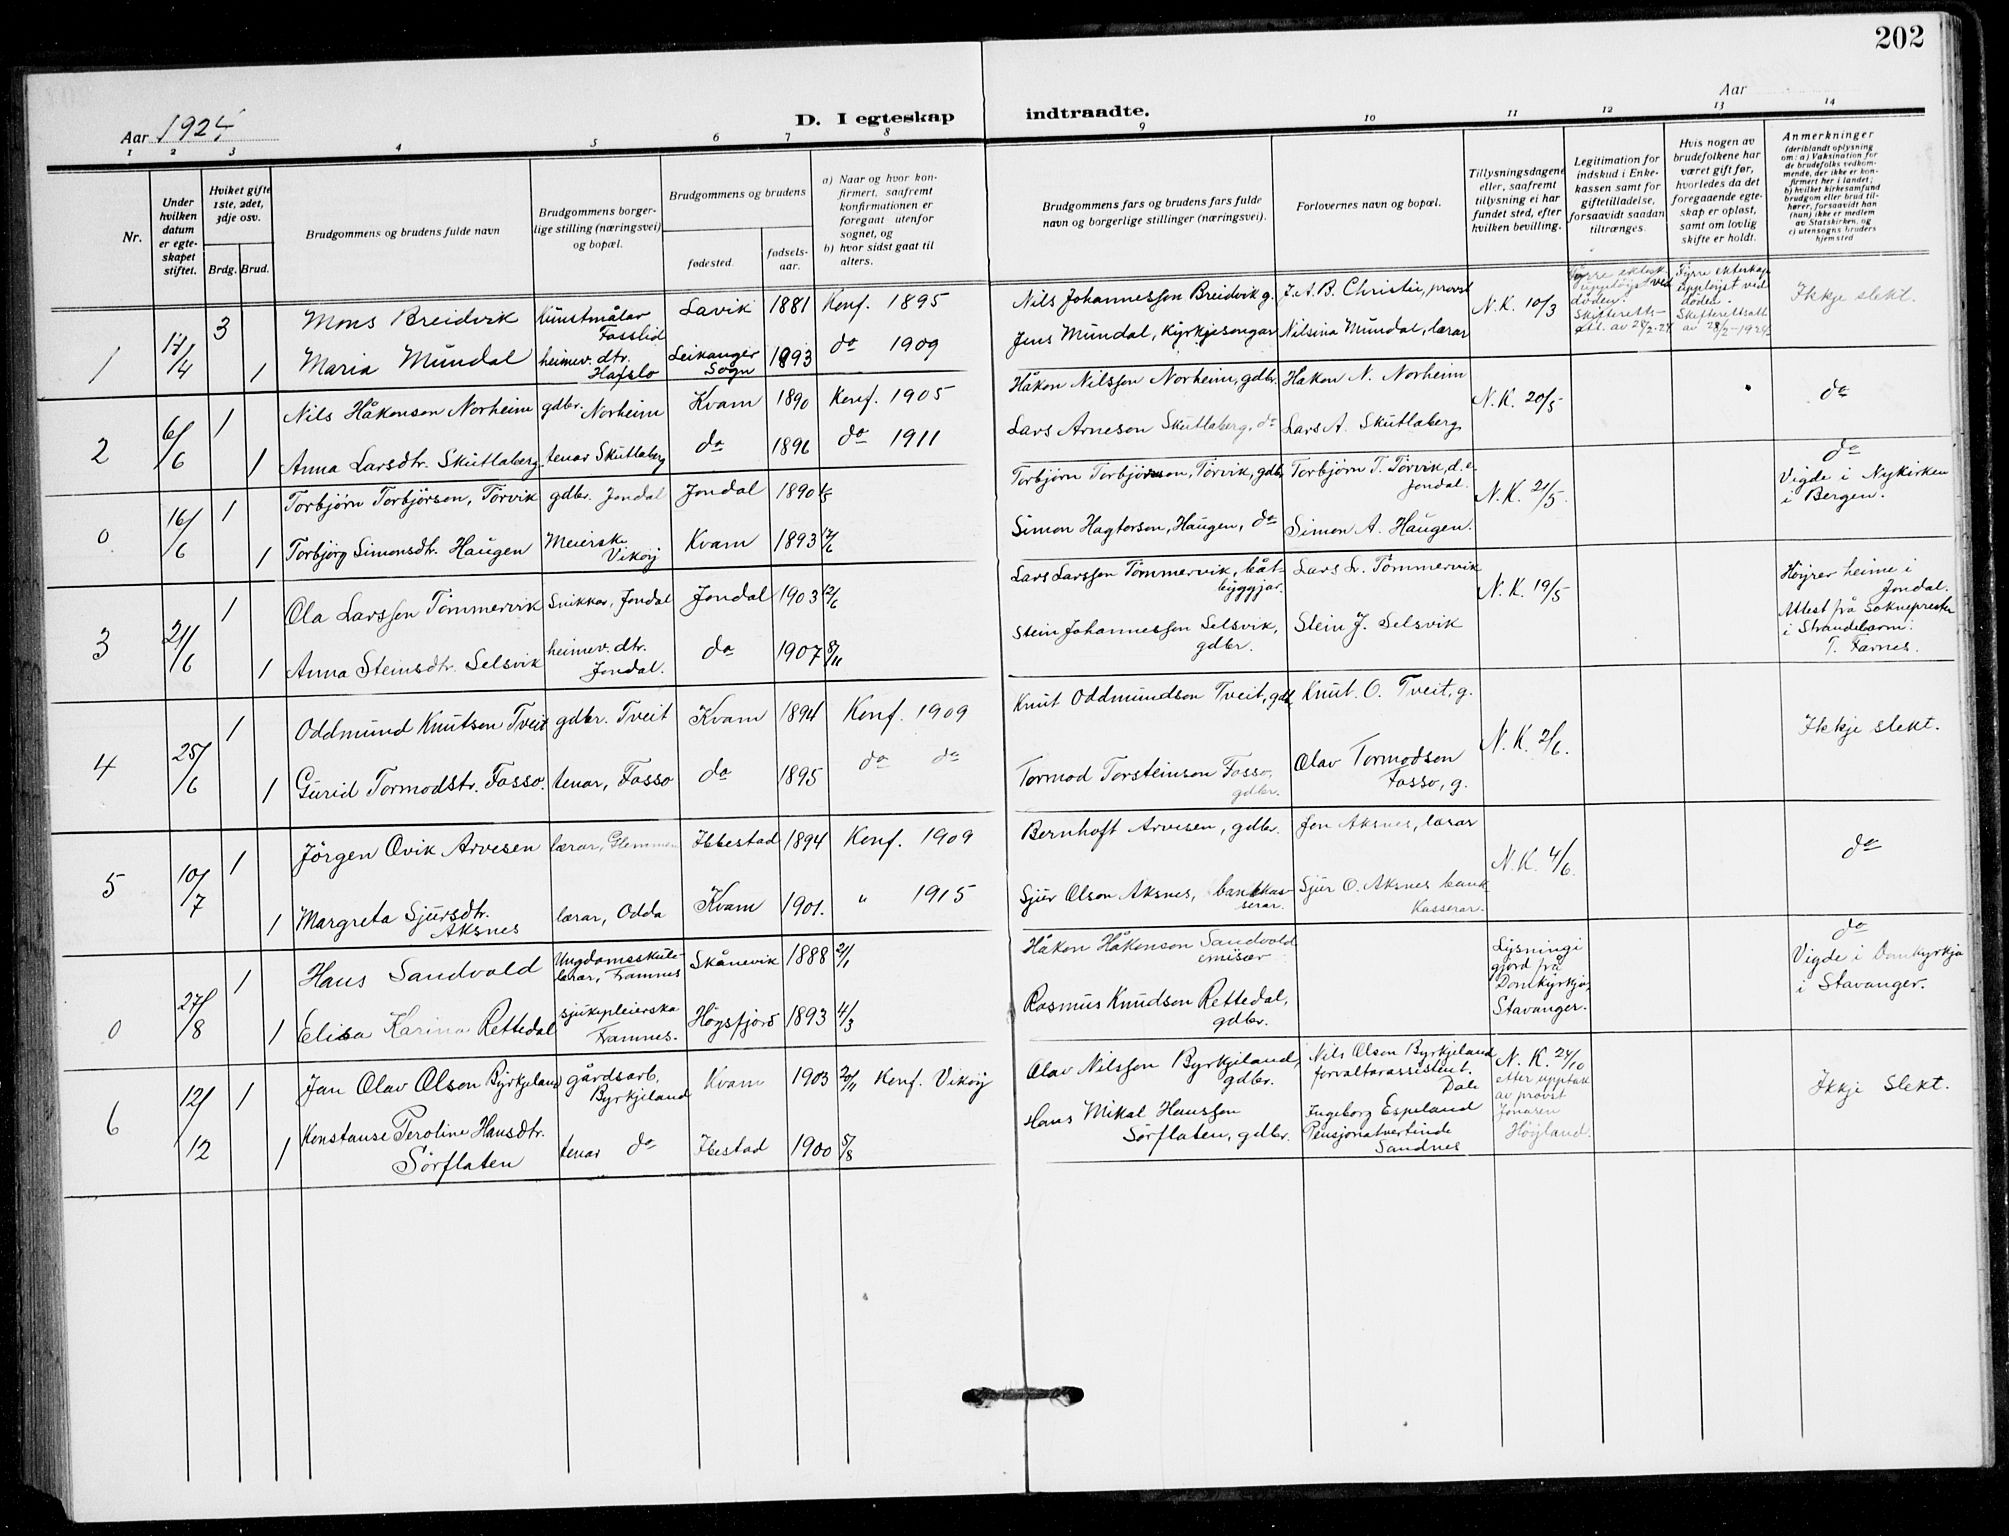 202
Aar 1924
D. I egteskap indtraadte.
Aar
1 2 3 4 5 6 7 8 9 10 11 12 13 14
Nr.
Under hvilken datum er egteskapet stiftet.
Hviket gifte 1ste, 2det, 3dje osv.
Brdg. Brud.
Brudgommens og brudens fulde navn
Brudgommens borgerlige stilling (næringsvei) og bopæl.
Brudgommens og brudens
fødested.
fødselsaar.
a) Naar og hvor konfirmert, saafremt konfirmationen er foregaat utenfor sognet, og
b) hvor sidst gaat til alters.
Brudgommens fars og brudens fars fulde navn og borgerlige stillinger (næringsvei).
Forlovernes navn og bopæl.
Tillysningsdagene eller, saafremt tillysning ei har fundet sted, efter hvilken bevilling.
Legitimation for indskud i Enkekassen samt for giftetilladelse, forsaavidt saadan tiltrænges.
Hvis nogen av brudefolkene har været gift før, hvorledes da det foregaaende egteskap er opløst, samt om lovlig skifte er holdt.
Anmerkninger
(deriblandt oplysning om: a) Vaksination for de brudefolks vedkommende, der ikke er konfirmert her i landet;
b) hvilket kirkesamfund brudgom eller brud tilhører, forsaavidt han (hun) ikke er medlem av Statskirken, og
c) utensogns bruders hjemsted
1 17/4 3 Mons Breidvik Kunstmålar Fosslid Lavik 1881 Konf. 1895 Nils Johannesson Breidvik g. J. A. B. Christie, prost N. K. 10/3 Fyrre ektesk. uppløyst ved døden. Skifteretts- av 28/2-24 Fyrre ekteskap uppløyst ved døden. Skifterettsatt. av 28/2-1924 Ikkje slekt.
1 Maria Mundal heimev. dtr. Hafslo Leikanger Sogn 1893 do 1909 Jens Mundal, Kyrkjesongar Nilsina Mundal, lærar
2 6/6 1 Nils Håkonson Norheim gdbr. Norheim Kvam 1890 Konf. 1905 Håkon Nilsson Norheim, gdbr. Håkon N. Norheim N. K. 20/5 do
1 Anna Larsdtr. Skutlaberg tenar Skutlaberg do 1896 do 1911 Lars Arneson Skutlaberg, do Lars A. Skutlaberg
0 16/6 1 Torbjörn Torbjörson, Törvik gdbr. Jondal Jondal 1890 Torbjörn Torbjörnson, Törvik, gdbr. Torbjörn T. Törvik, d. e. Jondal. N. K. 21/5. do Vigde i Nykirken i Bergen.
1 Torbjörg Simonsdtr. Haugen Meierske Vikøy Kvam 1893 12/6 Simon Hagtorson, Haugen, do Simon A. Haugen.
3 21/6 1 Ola Larsson Tömmervik Snikkar, Jondal Jondal 1903 12/6 Lars Larsson Tömmervik, båtbyggjar. Lars L. Tömmervik N. K. 19/5 Höyrer heime i Jondal. Attest på Sokneprester i Strandebarm: T. Farnes.
1 Anna Steinsdtr. Selsvik heimev. dtr. Jondal. do 1907 8/11 Stein Johannesson Selsvik, gdbr. Stein J. Selsvik
4 25/6 1 Oddmund Knutson Tveit gdbr. Tveit Kvam 1894 Konf. 1909 Knut Oddmundson Tveit, gdb. Knut. O. Tveit, g. N. K. 2/6. Ikkje slekt.
1 Gurid Tormodstr. Fosso. tenar, Fosso do 1895 do do Tormod Torsteinson Fosso, gdbr. Olav Tormodson Fosso, g.
5 10/7 1 Jörgen Ovik Arvesen lærar, Glemmen Ibbestad 1894 Konf. 1909 Bernhoft Arvesen, gdbr. Jon Aksnes, lærar N. K. 4/6. do
1 Margreta Sjursdtr. Aksnes lærar, Odda Kvam 1901. " 1915 Sjur Olson Aksnes, bankkasserar. Sjur O. Aksnes bankkasserar.
0 27/8 1 Hans Sandvold Ungdomsskulelærar, Framnes Skånevik 1888 21/1 Håkon Håkonson Sandvold emisær Lysningi gjord frå Domkyrkja, Stavanger. do Vigde i Domkyrkja i Stavanger.
1 Elisa Karina Rettedal sjukepleierska Framnes. Högsfjord 1893 4/3 Rasmus Knudson Rettedal, gdbr.
6 12/12 1 Jan Olav Olson Byrkjeland gårdsarb. Byrkjeland Kvam 1903 20/11 Konf. Vikøy Olav Nilsson Byrkjeland, gdbr. Nils Olson Byrkjeland forvaltarassistent. Dale N. K. 24/10 etter upptak av prost Jonasen Höyland. Ikkje slekt.
1 Konstanse Peroline Hansdtr. Sörflaten tenar do Ibestad 1900 5/8 Hans Mikal Hansson Sörflaten, gdbr. Ingeborg Espeland Pensjonatvertinde Sandnes